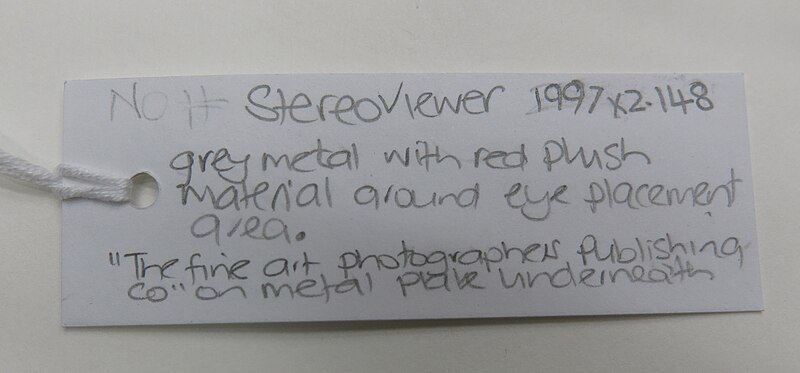 No # Stereoviewer 1997x2.148
grey metal with red plush
material around eye placement
area.
"The fine art photographers Publishing
Co" on metal plate underneath